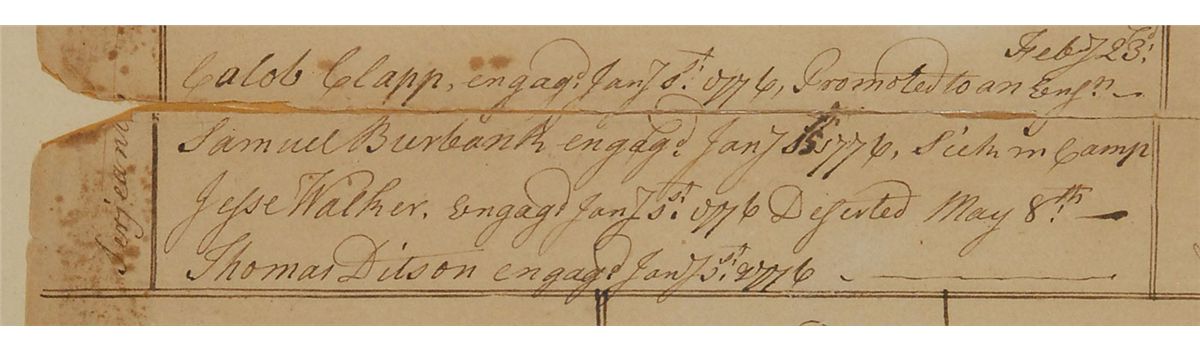 Feby 23d.
Calob Clapp, engagd. Jany 1st. 1776, Promoted to an Ensn.
Samuel Burbank engagd. Jany 1st 1776, Sick in Camp
Jesse Walker. Engagd. Jany 1st. 1776 Deserted May 8th.
Thomas Ditson engagd. Jany 1st. 1776
Serjeants